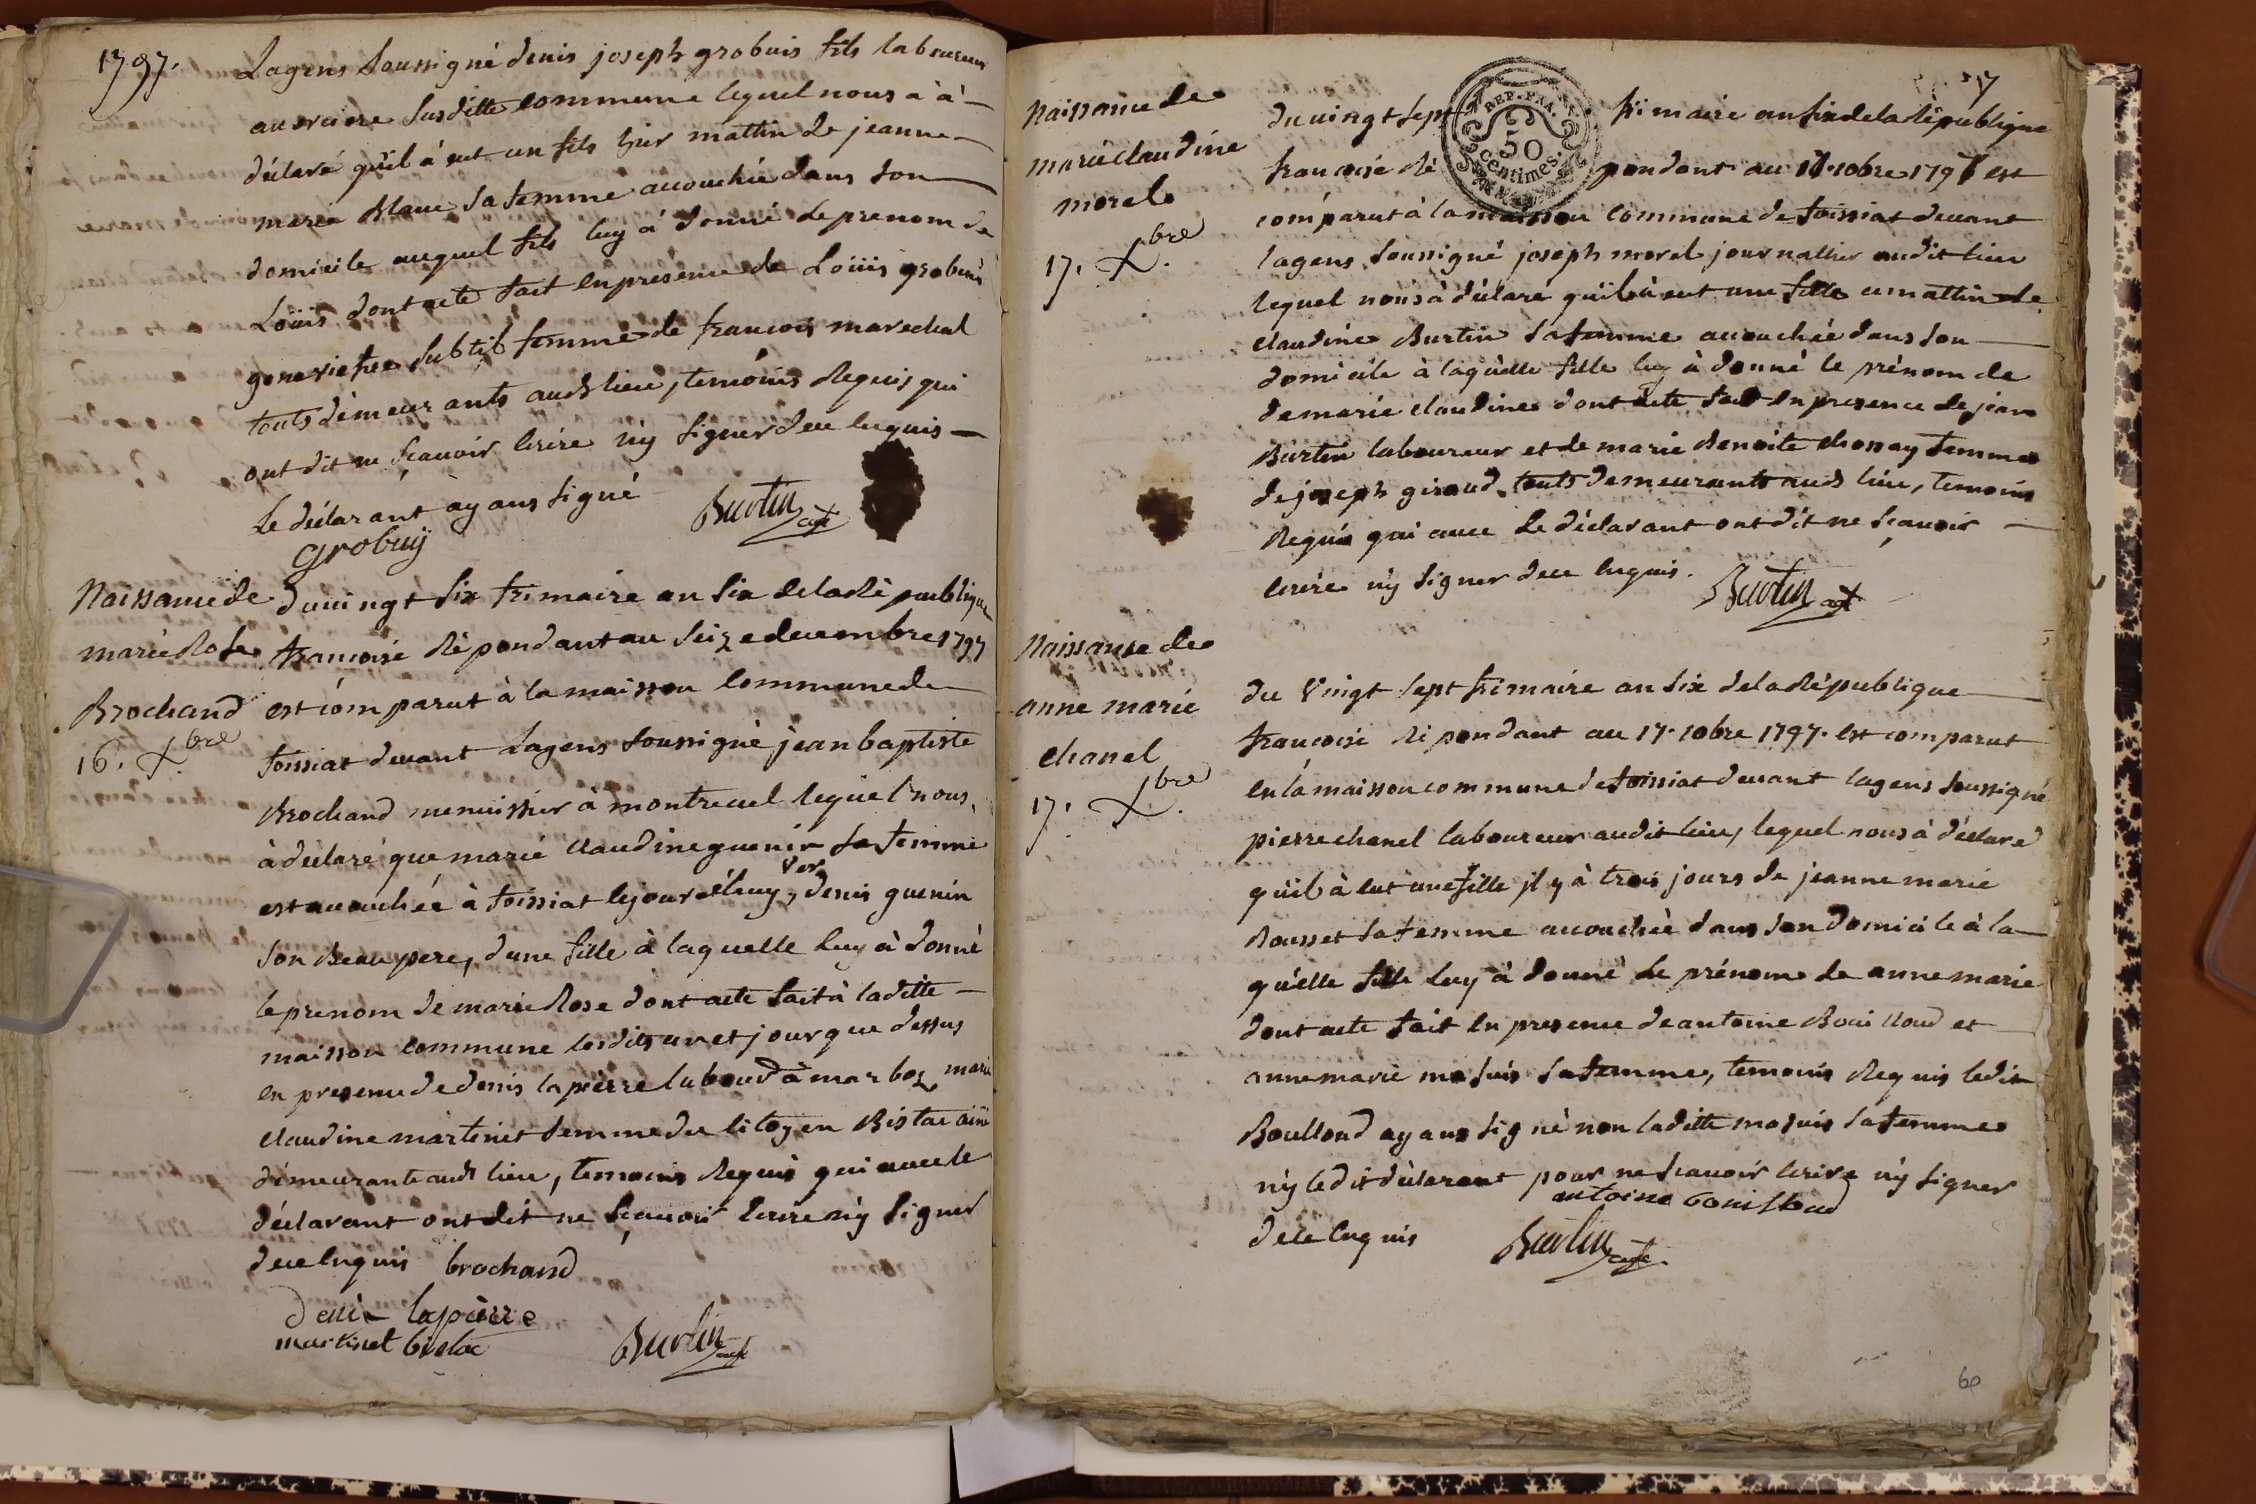 1797.
Lagens Soussigné denis joseph grobuis fils laboureur
au orciere Susditte commune lequel nous a à
déclaré qu'il à eut un fils hier mattin de jeanne
marie Blanc Sa femme accouchée dans Son
domicile auquel fils luy à donné le prenom de
Loüis dont acte fait en presence de Loüis grobuis
geneviefve Subtil femme de francois marechal
touts démeurants auds lieu, temoins Requis qui
ont dit ne Sçauoir Ecrire n'y Signer de ce Enquis
Le déclarant ayans Signé
grobuÿ
Burtin agt
Naissance de
marie Rose
Brochand
16. Xbre
du uingt Six frimaire an Six de la République
francoise Répondant au Seize decembre 1797
est comparut à la maisson Commune de
foissiat deuant Lagens Soussigné jean baptiste
Brochand menuissier à montreuel lequel nous
à déclaré que marie Claudine guenin Sa femme
est accouchée à foissiat le jour d'huy, Vor denis guenin
Son Beau pere, d'une fille à laquelle luy à donné
le prenom de marie Rose dont acte fait à laditte
maisson commune lesdits an et jour que dessus
en presence de denis lapierre laboud à marboz, marie
Claudine martinet femme du Citoyen Bistac ainé
démeurante auds lieu, temoins Requis qui auec le
déclarant ont dit ne Sçauoir Ecrire n'y Signer
de ce Enquis brochand
deni lapierre
martinet bistac
Burtin agt
57
Naissance de
marie claudine
morel
17. Xbre
REP. FRA.
50
centimes.
du uingt Sept frimaire an Six de la République
francoise Ré pondant au 17. 10bre 1797 est
comparut à la maisson Commune de foissiat deuant
lagens Soussigné joseph morel journallier audit lieu
lequel nous à déclaré qu'il à eut une fille ce mattin de
claudine Burtin Sa femme accouchée dans Son
domicile à laquelle fille luy à donné le prénom de
de marie claudine dont acte fait En presence de jean
Burtin laboureur et de marie Benoite chossay femme
de joseph giraud touts demeurants auds lieu, temoins
Requis qui auec Le déclarant ont dit ne Sçauoir
Ecrire n'y Signer de ce Enquis.
Burtin agt
Naissance de
anne marie
chanel
17. Xbre
du Vingt Sept frimaire an Six de la République
francoise Ré pondant au 17. 10bre 1797. est comparut
en la maisson commune de foissiat deuant lagens Soussigné
pierre chanel laboureur audit lieu, lequel nous à déclaré
qu'il à eut une fille il y à trois jours de jeanne marie
Rousset Sa femme accouchée dans Son domicile à la
quelle fille luy à donné le prénom de anne marie
dont acte fait En presence de antoine Bouilloud et
anne marie masuis Sa femme, temoins Requis ledit
Boulloud ayans Signé non laditte masuis Sa femme
n'y ledit déclarant pour ne Sçauoir Ecrire n'y Signer
antoine bouilloud
de ce Enquis
Burtin agt
60